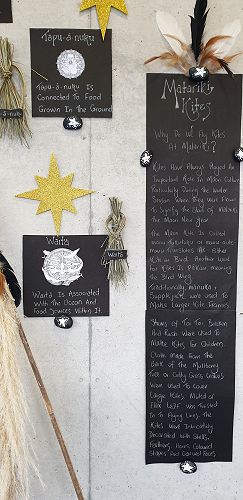 Tapu-ā-nuku
Tapu-ā-nuku Is
Connected To Food
Grown In The Ground
Waitā
Waitā Is Associated
With The Ocean And
Food Sources Within It
Waitā
Matariki
Kites
Why Do We Fly Kites
At Matariki?
Kites Have Always Played An
Important Role In Māori Culture
Particularly During The Winter
Season When They Were Flown
To Signify The Start Of Matariki
The Māori New Year
The Māori Kite Is Called
manu tukutuku or manu aute
manu Translates As Either
Kite or Bird. Another Word
for Kites Is Pākau meaning
the Bird Wing
Traditionally, mānuka +
Supplejack were used To
Make Larger Kite Frames.
Stems Of Toi Toi, Bracken
And Rush Were Used To
Make Kites For Children.
Cloth Made From The
Bark of The Mulberry
Tree or Cutty Grass Leaves
Were Used To Cover
Large Kites, Muka of
Flax Leaf was Twisted
For The Flying Lines. The
Kites Were Intricately
Decorated with Shells,
Feathers, Horns Coloured
Shapes And Carved Faces.